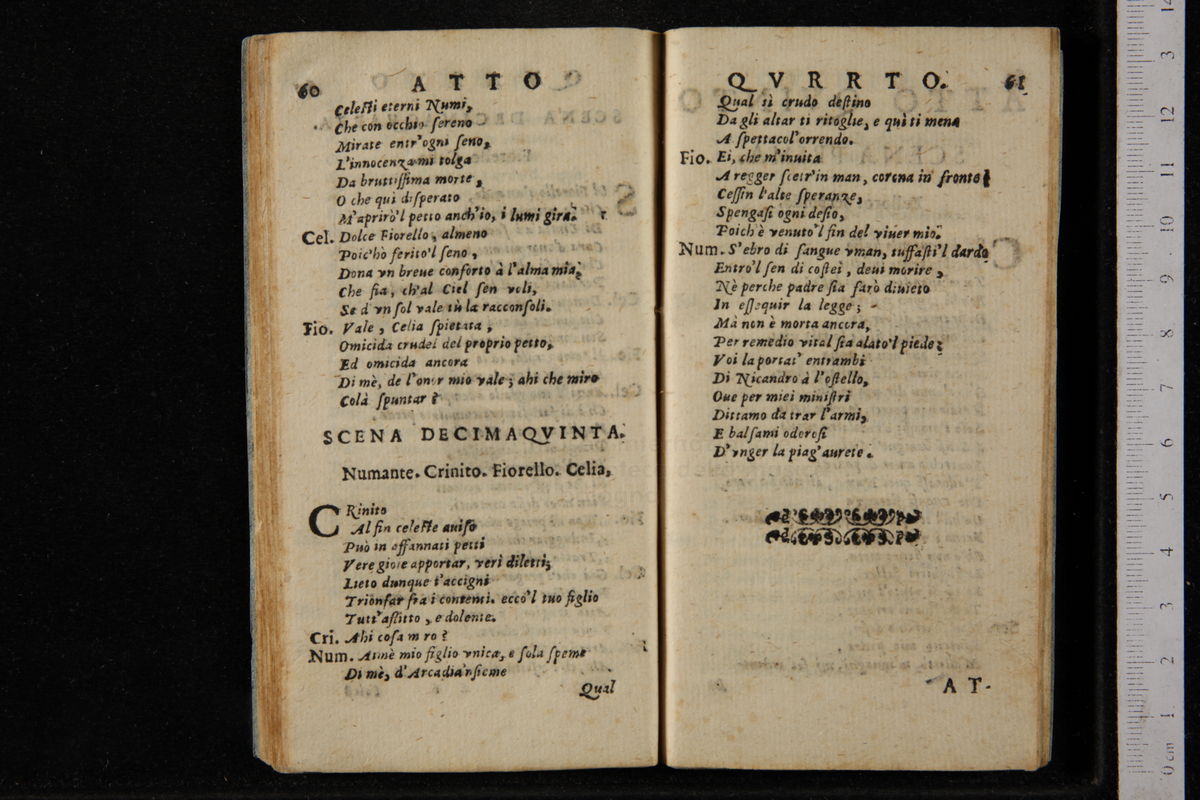 60 ATTO
Celesti eterni Numi,
Che con occhio sereno
Mirate entr'ogni seno,
L'innocenza mi tolga
Da bruttissima morte,
O che qui disperato
M'aprirò'l petto anch'io, i lumi gira.
Cel. Dolce Fiorello, almeno
Poic'hò ferito'l seno,
Dona vn breue conforto à l'alma mia,
Che sia, ch'al Ciel sen voli,
Se d'vn sol vale tù la racconsoli.
Fio. Vale, Celia spietata,
Omicida crudel del proprio petto,
Ed omicida ancora
Di mè, de l'onor mio vale; ahi che miro
Colà spuntar?
SCENA DECIMAQVINTA.
Numante. Crinito. Fiorello. Celia,
CRinito
Al fin celeste auiso
Può in affannati petti
Vere gioie apportar, veri diletti;
Lieto dunque t'accigni
Trionfar fra i contenti. ecco'l tuo figlio
Tutt'aflitto, e dolente.
Cri. Ahi cosa m ro?
Num. Aimè mio figlio vnica, e sola speme
Di mè, d'Arcadia'nsieme
Qual
QVRRTO. 61
Qual sì crudo destino
Da gli altar ti ritoglie, e quì ti mena
A spettacol'orrendo.
Fio. Ei, che m'inuita
A regger scetr'in man, corona in fronte!
Cessin l'alte speranze,
Spengasi ogni desio,
Poich'è venuto'l fin del viuer mio.
Num. S'ebro di sangue vman, tuffasti'l dardo
Entro'l sen di costei, deui morire,
Nè perche padre sia farò diuieto
In essequir la legge;
Mà non è morta ancora,
Per remedio vital sia alato'l piede;
Voi la portat' entrambi
Di Nicandro à l'ostello,
Oue per miei ministri
Dittamo da trar l'armi,
E balsami odorosi
D'vnger la piag'aurete.
AT-